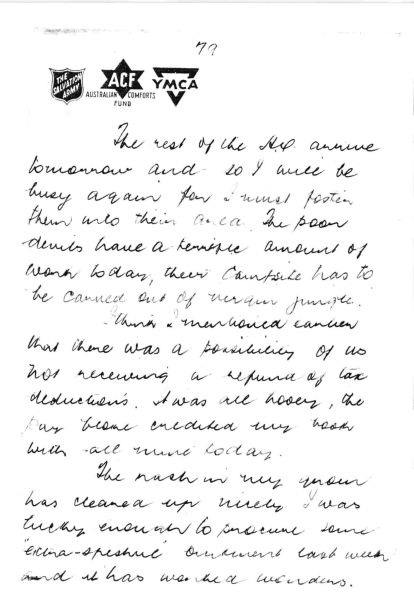 79
THE SALVATION ARMY
ACF
AUSTRALIAN COMFORTS FUND
YMCA
The rest of the H.Q. arrive
tomorrow and so I will be
busy again for I must foster
them into their area. The poor
devils have a terrific amount of
work today, their campsite has to
be carved out of virgin jungle.
I think I mentioned earlier
that there was a possibility of us
not receiving a refund of tax
deductions. It was all hooey, the
Pay credited my book
with all mine today.
The rash in my groin
has cleared up nicely I was
lucky enough to procure some
"extra-special" ointment last week
and it has worked wonders.